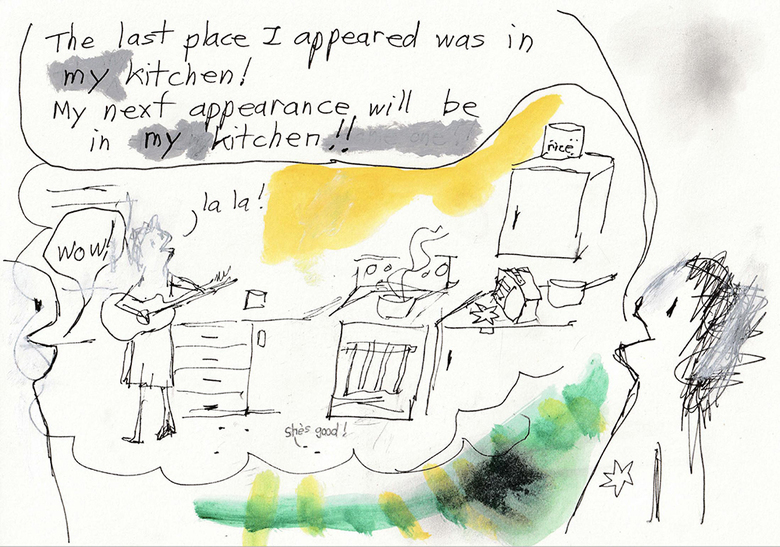 The last place I appeared was in
my kitchen!
My next appearance will be
in my kitchen!!
la la!
rice
wow!
she's good!